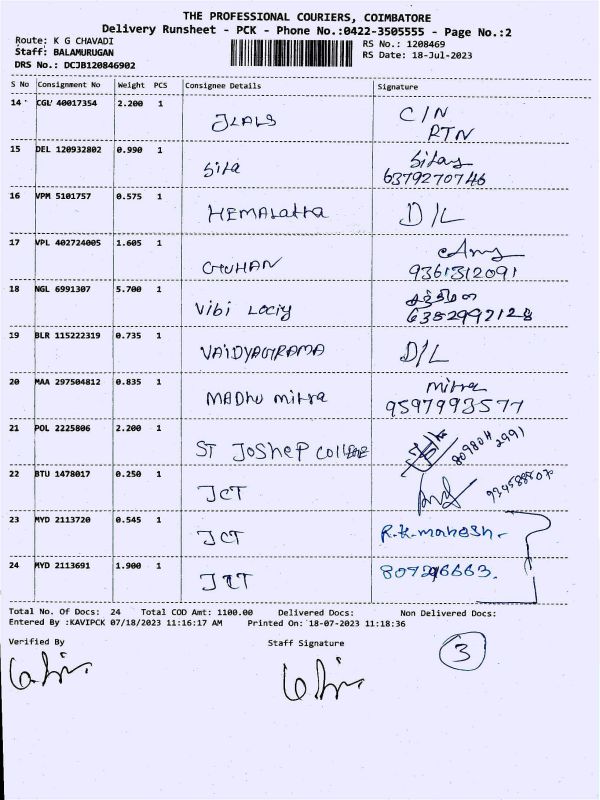 THE PROFESSIONAL COURIERS, COIMBATORE
Delivery Runsheet - PCK - Phone No.:0422-3505555 - Page No.:2
Route: K G CHAVADI
RS No.: 1208469
Staff: BALAMURUGAN
RS Date: 18-Jul-2023
DRS No.: DCJB120846902
S No Consignment No Weight PCS Consignee Details Signature
14 CGL 40017354 2.200 1 C/N
JLALS RTN
15 DEL 120932802 0.990 1
Sita 6379270746
16 VPM 5101757 0.575 1
HEMALatha D/L
17 VPL 402724005 1.605 1
GUHAN 9361312091
18 NGL 6991307 5.700 1
Vibi Lociy 6382997128
19 BLR 115222319 0.735 1
VAIDYAGRAMA D/L
20 MAA 297504812 0.835 1 Mitra
MADhu mitra 9597993577
21 POL 2225806 2.200 1
ST JoSheP COLLEGE 80980H 2991
22 BTU 1478017 0.250 1
JCT
23 MYD 2113720 0.545 1
JCT R.K.mahesh.
24 MYD 2113691 1.900 1
JCT
Total No. Of Docs: 24 Total COD Amt: 1100.00 Delivered Docs: Non Delivered Docs:
Entered By :KAVIPCK 07/18/2023 11:16:17 AM Printed On: 18-07-2023 11:18:36
Verified By Staff Signature
3